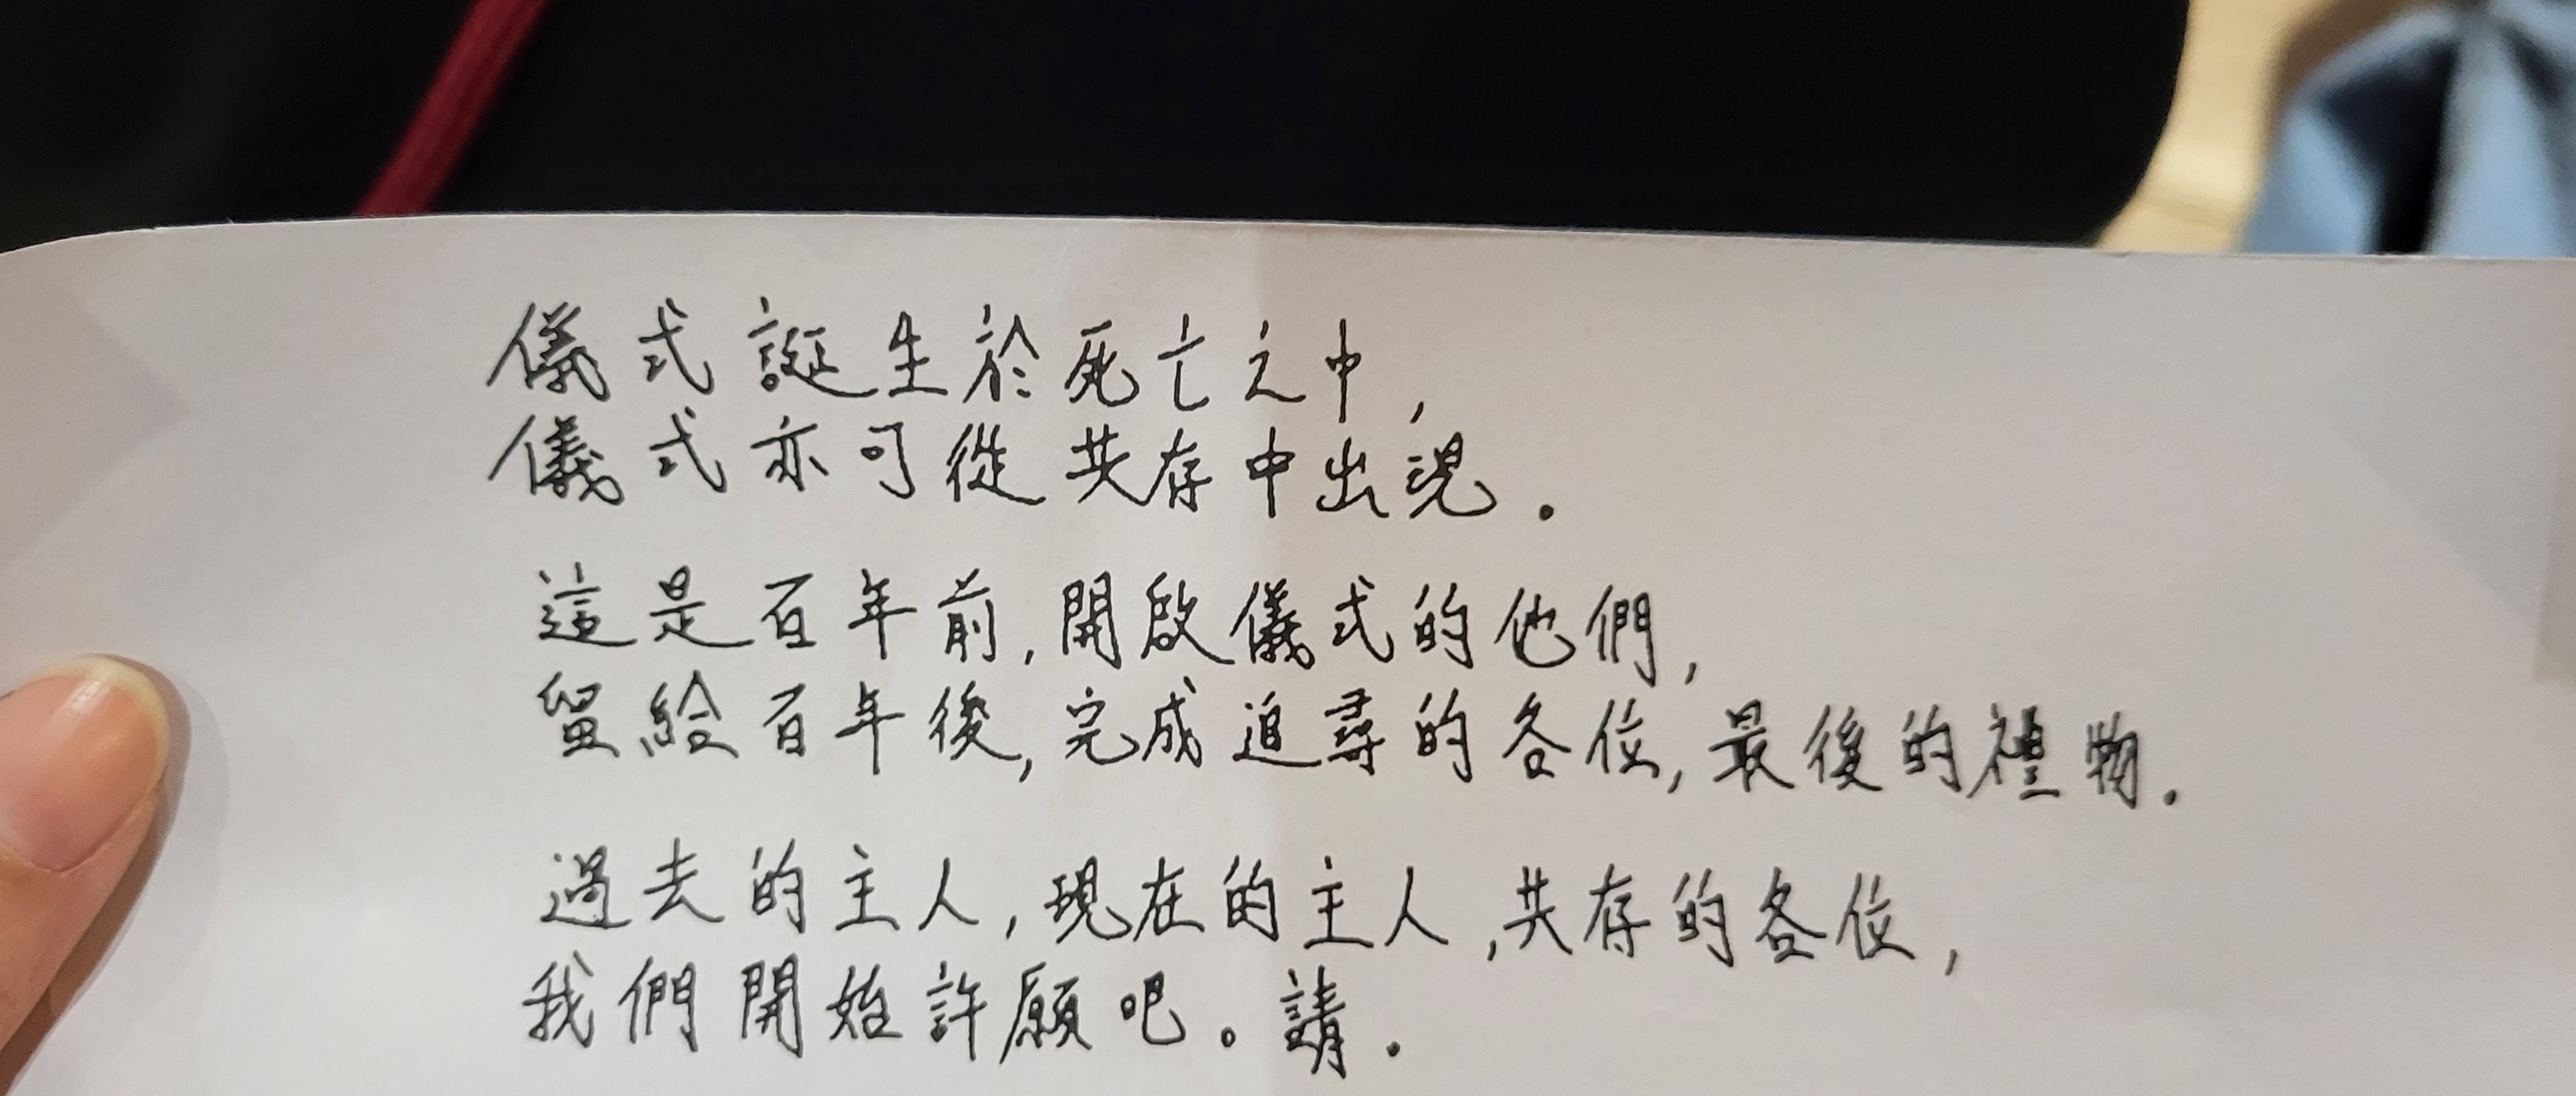 儀式誕生於死亡之中,
儀式亦可從共存中出現.
這是百年前,開啟儀式的他們,
留給百年後,完成追尋的各位,最後的禮物.
過去的主人,現在的主人,共存的各位,
我們開始許願吧。請.